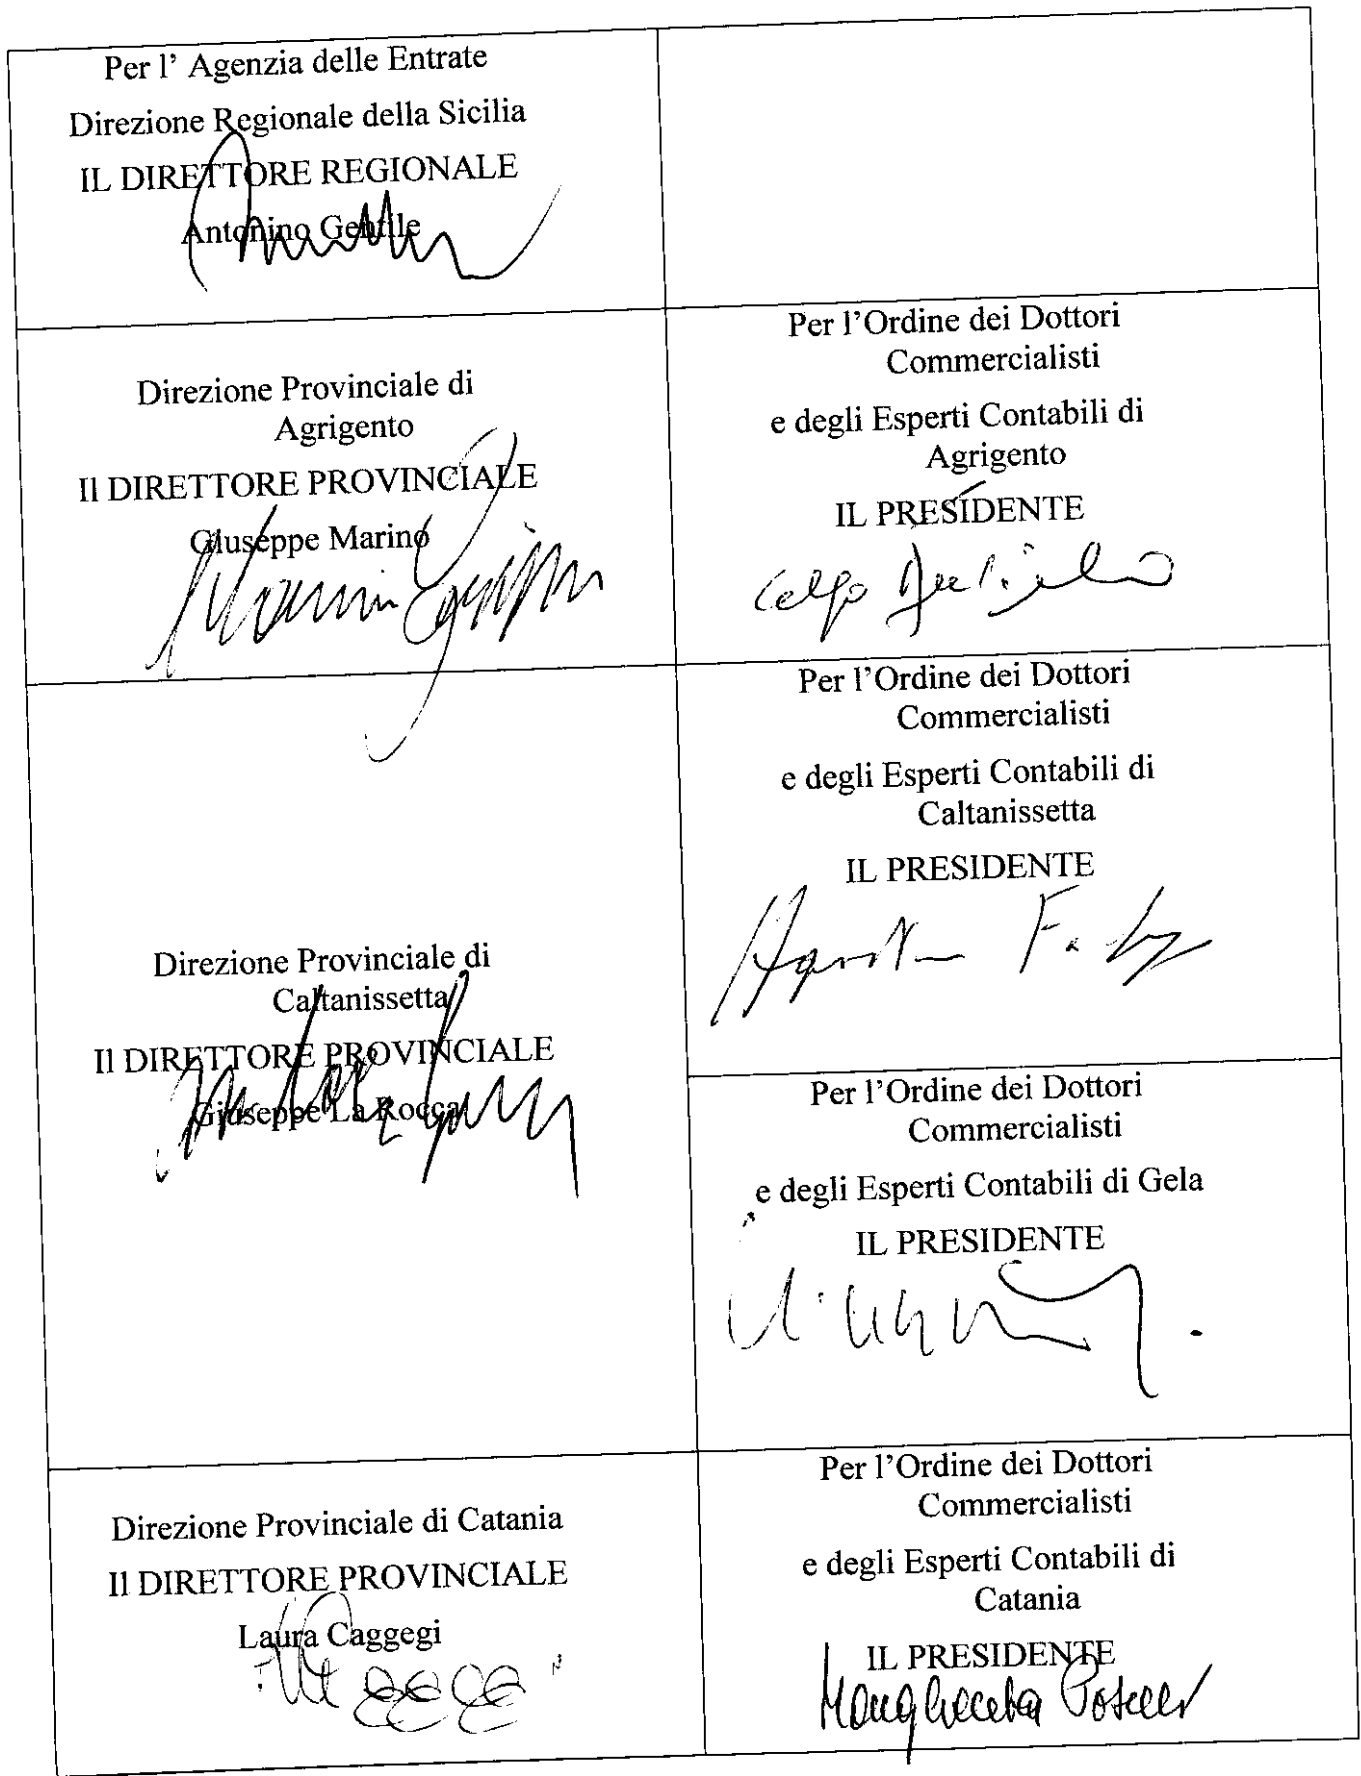 Per l' Agenzia delle Entrate
Direzione Regionale della Sicilia
IL DIRETTORE REGIONALE
Antonino Gentile
Direzione Provinciale di
Agrigento
Il DIRETTORE PROVINCIALE
Giuseppe Marino
Per l'Ordine dei Dottori
Commercialisti
e degli Esperti Contabili di
Agrigento
IL PRESIDENTE
Direzione Provinciale di
Caltanissetta
Il DIRETTORE PROVINCIALE
Giuseppe La Rocca
Per l'Ordine dei Dottori
Commercialisti
e degli Esperti Contabili di
Caltanissetta
IL PRESIDENTE
Per l'Ordine dei Dottori
Commercialisti
e degli Esperti Contabili di Gela
IL PRESIDENTE
Direzione Provinciale di Catania
Il DIRETTORE PROVINCIALE
Laura Caggegi
Per l'Ordine dei Dottori
Commercialisti
e degli Esperti Contabili di
Catania
IL PRESIDENTE